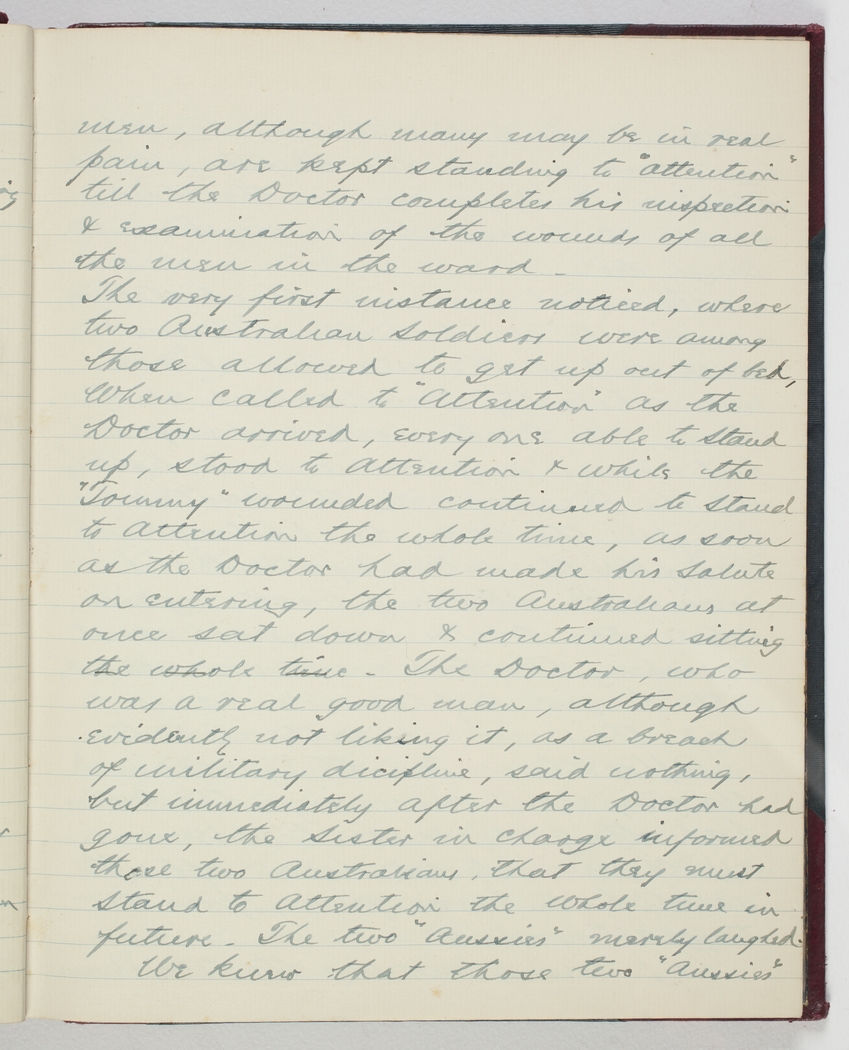 men, although many may be in real
pain, are kept standing to "attention"
till the Doctor completes his inspection
& examination of the wounds of all
the men in the ward -
The very first instance noticed, where
two Australian Soldiers were among
those allowed to get up out of bed,
When called to "Attention" as the
Doctor arrived, every one able to stand
up, stood to Attention & while the
"Tommy" wounded continued to stand
to Attention the whole time, as soon
as the Doctor had made his salute
on entering, the two Australians at
once sat down & continued sitting
the whole time - The Doctor, who
was a real good man, although
evidently not liking it, as a breach
of military dicipline, said nothing,
but immediately after the Doctor had
gone, the Sister in charge informed
these two Australians, that they must
stand to Attention the whole time in
future - The two "Aussies" merely laughed.
We knew that those two "Aussies"